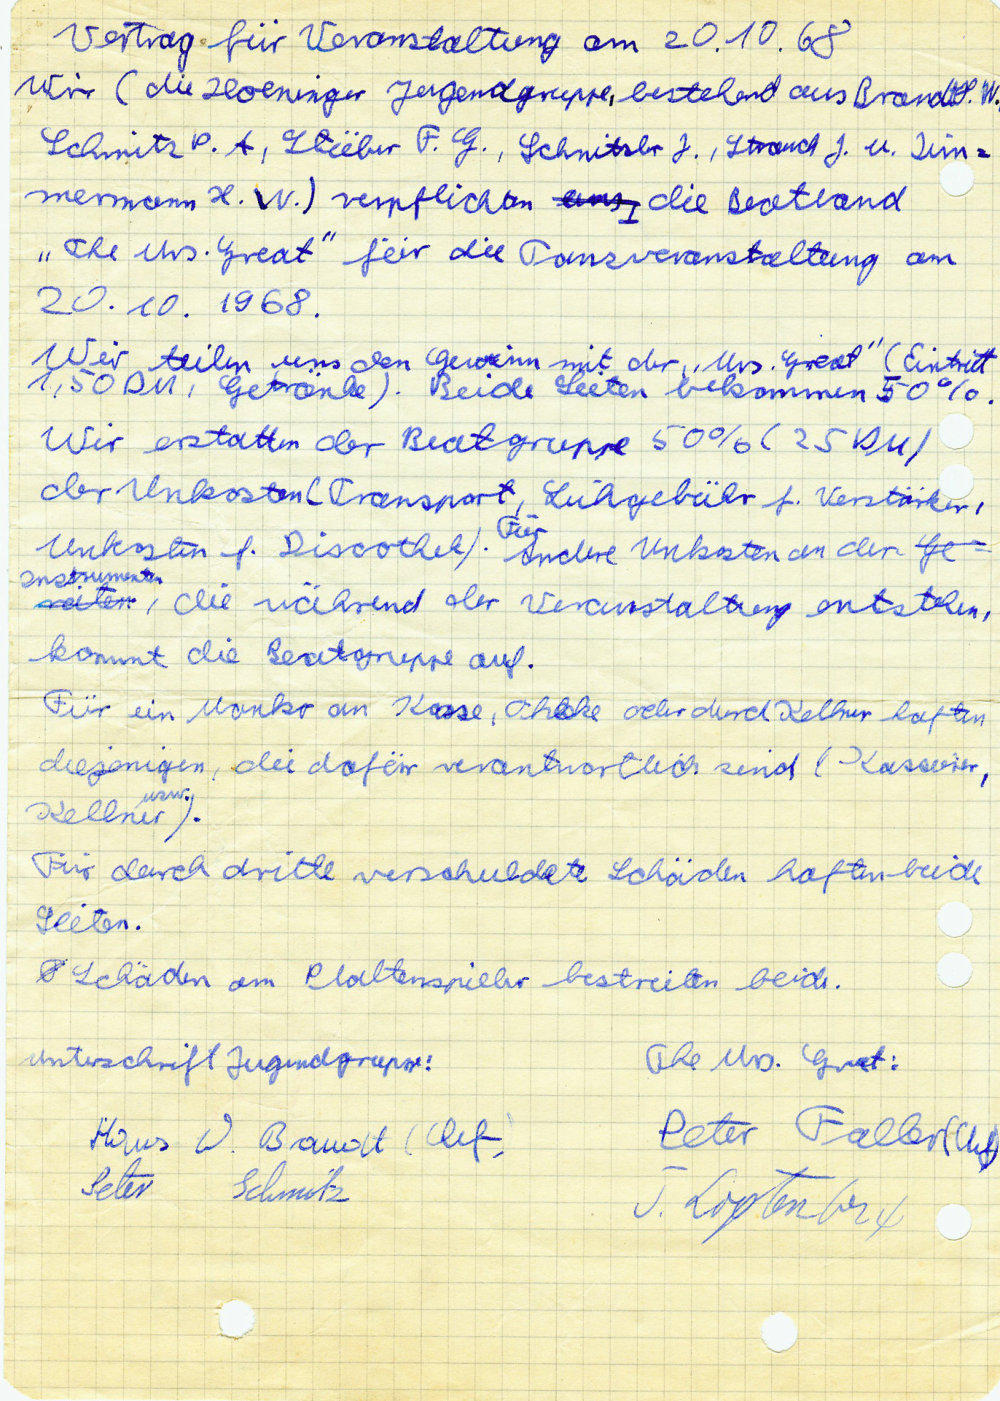 Vertrag für Veranstaltung am 20.10.68
Wir (die Hoeninger Jugendgruppe, bestehend aus Brandt H. W.,
Schmitz P. A, Stüber F. G., Schnitzler J., Strauch J. u. Zim=
mermann H. W.) verpflichten uns, die Beatband
„The Mrs. Great" für die Tanzveranstaltung am
20. 10. 1968.
Wir teilen uns den Gewinn mit der „Mrs. Great" (Eintritt
1,50 DM, Getränke). Beide Seiten bekommen 50%.
Wir erstatten der Beatgruppe 50% (25 DM)
der Unkosten (Transport, Leihgebühr f. Verstärker,
Unkosten f. Discothek). Für andere Unkosten an den Ge=
Instrumenten
seiten, die während der Veranstaltung entstehen,
kommt die Beatgruppe auf.
Für ein Manko an Kasse, Theke oder durch Kellner haften
diejenigen, die dafür verantwortlich sind (Kassierer,
Kellner usw.).
Für durch dritte verschuldete Schäden haften beide
Seiten.
Schäden am Plattenspieler bestreiten beide.
Unterschrift Jugendgruppe: The Mrs. Great:
Hans W. Brandt (Chef) Peter Faller (Chef)
Peter Schmitz